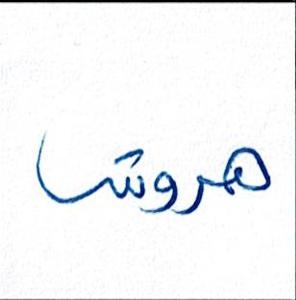 هروشا